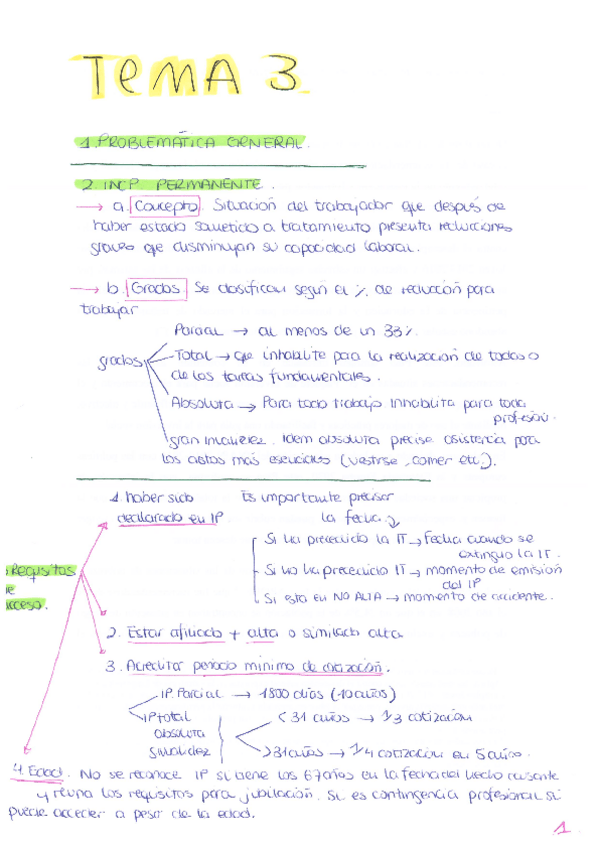 TEMA 3
1. PROBLEMÁTICA GENERAL.
2 INCP. PERMANENTE.
→ a. Concepto. Situación del trabajador que después de
haber estado sometido a tratamiento presenta reducciones
graves que disminuyan su capacidad laboral.
→ b. Grados. Se clasifican según el % de reducción para
trabajar
grados
Parcial → al menos de un 33%.
Total → que inhabilite para la realización de todas o
de las tareas fundamentales.
Absoluta → Para todo trabajo Inhabilita para toda
profesión.
gran Invalidez. Idem absoluta precise asistencia para
los actos más esenciales (vestirse, comer etc.).
Requisitos
acceso.
1. haber sido
declarado en IP.
Es importante precisar
la fecha
Si ha precedido la IT → Fecha cuando se
extinguio la IT.
Si no ha precedido IT → momento de emisión
del IP
Si esta en NO ALTA → momento de accidente.
2. Estar afiliado + alta o similado alta
3. Acreditar periodo minimo de cotización.
IP. Parcial → 1800 días (-10 años)
IP total
absoluta
G. Invalidez
< 31 años → 1/3 cotización
>31 años → 1/4 cotización en 5 años.
4. Edad. No se reconoce IP si tiene los 67 años en la fecha del hecho causante
y reuna los requisitos para jubilación. Si es contingencia profesional si
puede acceder a pesar de la edad.
1